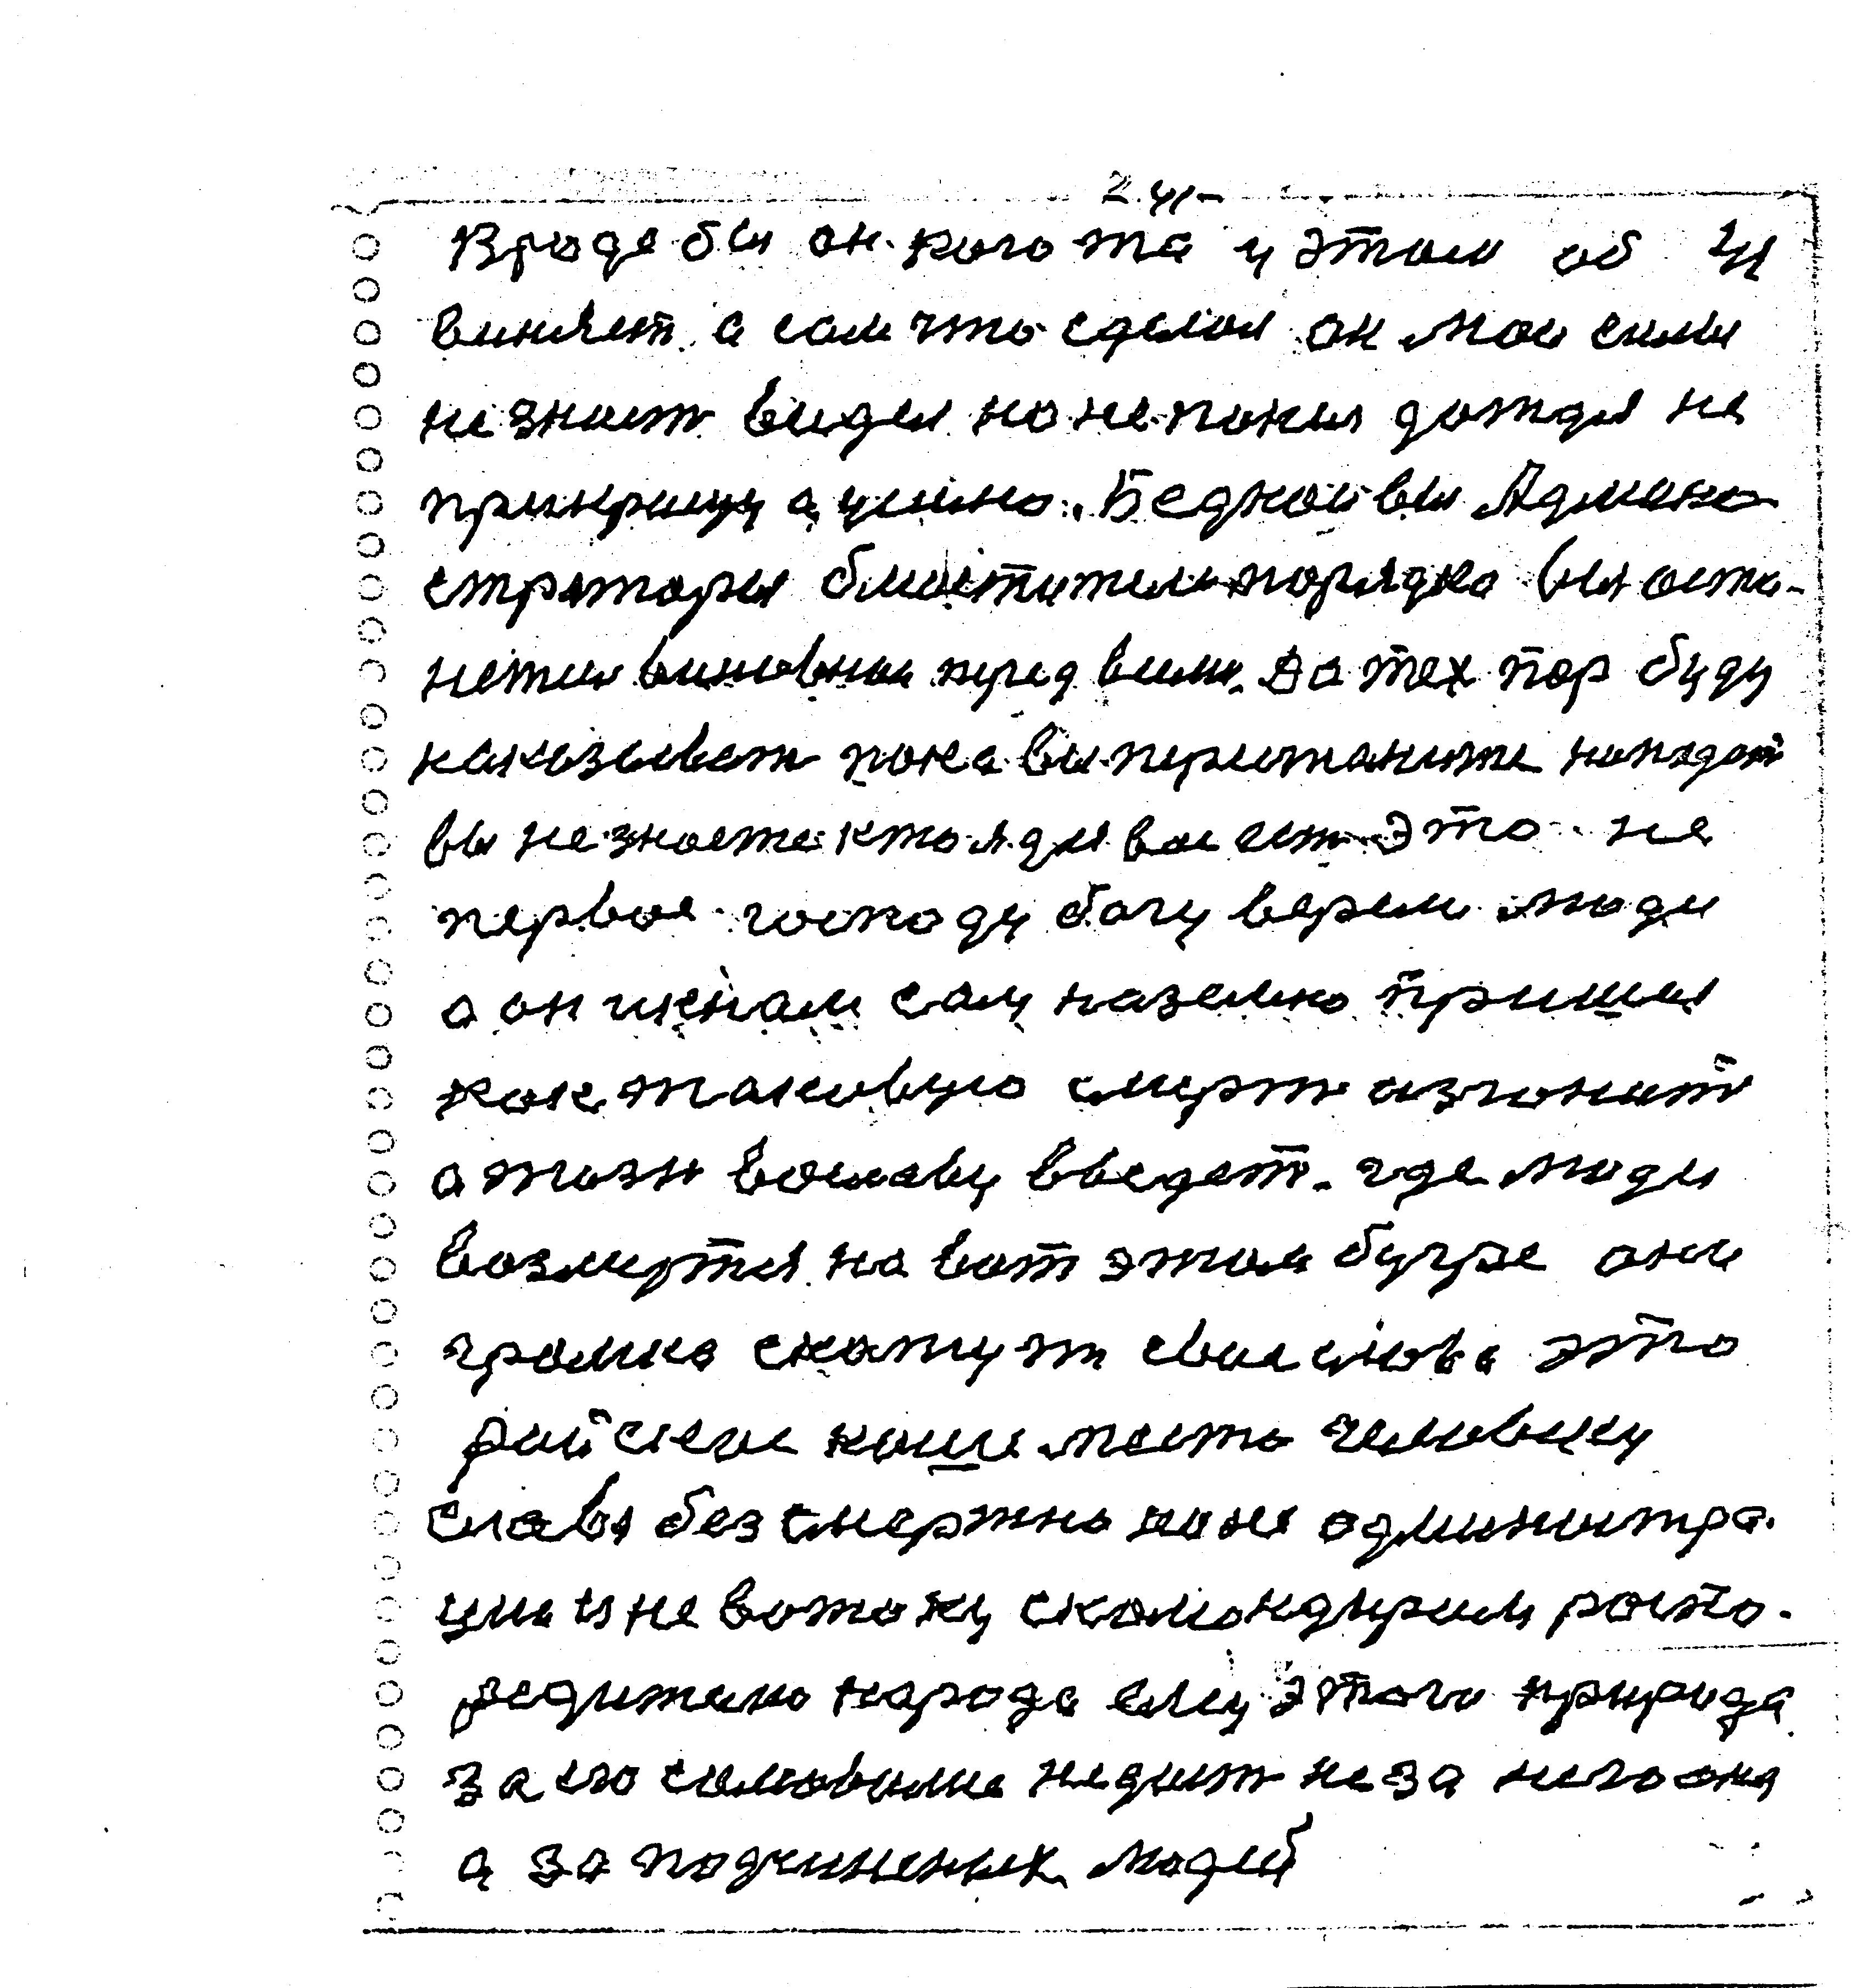 24
Вроде бы он кого та у этом об ы
виняет а сам что сделал он мои силы
не знает видел но не понял дотдя не
прикращу а уимно. Бедкои вы Админи
страторы блюстители порядка вы оста-
нетись виновные перед вами. До тех пор буду
наказывать пока вы перестаните нападат
вы не знаете кто я для вас ест Это не
первое господу богу верели люди
а он же нам сам на землю пришел
как таковую смерт изгонит
а жизн во славу введет. где люди
возмертся на вот этом бугре они
громко скажут свои слова это
райское наше место человеку
слава безсмертно но не админостра
ция я не вотоку скомандирил распо-
редителю народа ему этого природа
за его самовилие не дает не за ниго она
а за подчиненых людей